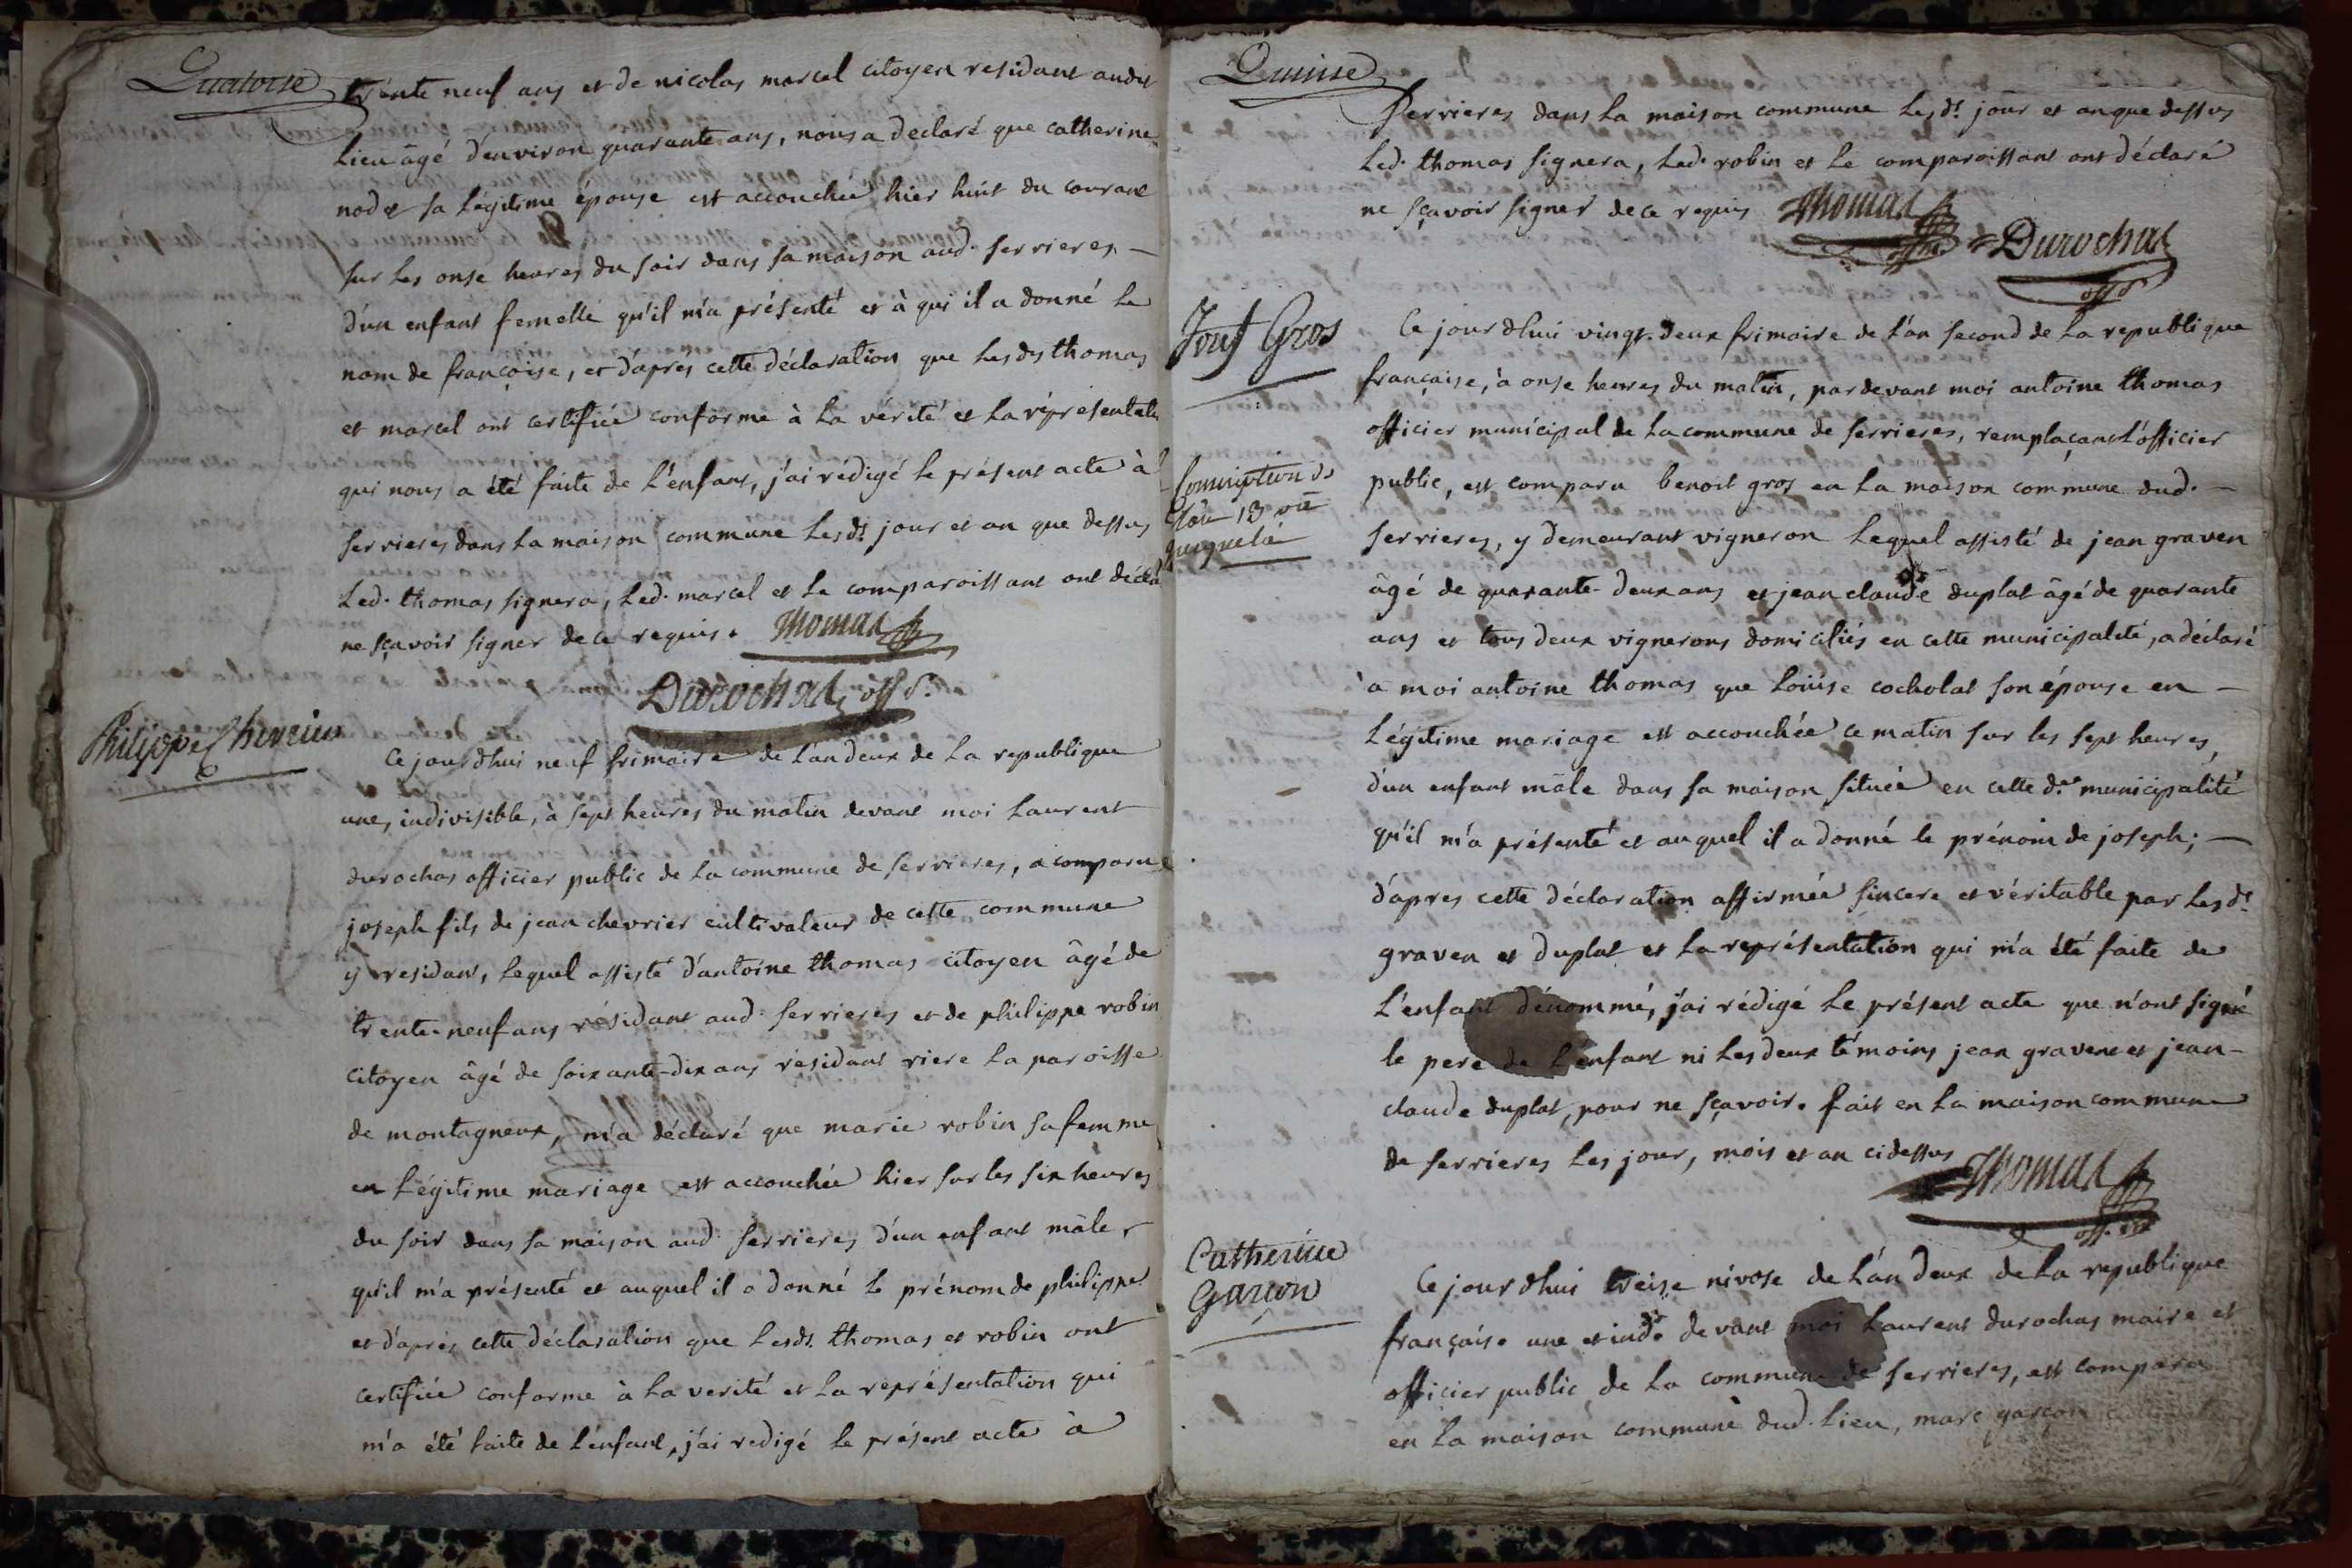 Quatorse
trente neuf ans et de nicolas marcel citoyen residant audit
lieu âgé d'environ quarante ans, nous a declaré que catherine
nodet sa légitime épouse est accouchée hier huit du courant
sur les onse heures du soir dans sa maison aud. serrieres, —
d'un enfant femelle qu'il m'a présenté et à qui il a donné le
nom de françoise, et d'après cette déclaration que lesds thomas
et marcel ont certifiée conforme à la vérité et la réprésentati
qui nous a été faite de l'enfant, j'ai rédigé le présent acte à
serrieres dans la maison commune lesd.s jour et an que dessus
led. thomas signera, led. marcel et le comparoissant ont décla
ne sçavoir signer de ce requis. Thomas
Durochat, off p.
Philippe Chevrier
Ce jourdhui neuf frimaire de l'an deux de la republique
une, indivisible, à sept heures du matin devant moi laurent
durochas officier public de la commune de serrieres, a comparu
joseph fils de jean chevrier cultivateur de cette commune
y residant, lequel assisté d'antoine thomas citoyen âgé de
trente-neuf ans résidant aud. serrieres et de philippe robin
citoyen âgé de soixante-dix ans résidant riere la paroisse
de montagneux, m'a déclaré que marie robin sa femme
en légitime mariage est accouchée hier sur les six heures
du soir dans sa maison aud. serrieres d'un enfant mâle,
qu'il m'a présenté et auquel il a donné le prénom de philippe
et d'après cette déclaration que lesds. thomas et robin ont
certifiée conforme à la verité et la représentation qui
m'a été faite de l'enfant, j'ai redigé le présent acte à
Quinse
Serrieres dans la maison commune lesd.s jour et an que dessus
led. thomas signera, led. robin et le comparoissant ont déclaré
ne sçavoir signer de ce requis Thomas
Durochat
off p
Josef Gros
Ce jourdhui vingt-deux frimaire de l'an second de la republique
française, à onse heures du matin, pardevant moi antoine thomas
officier municipal de la commune de serrieres, remplaçant l'officier
Conscription de
l'an 13
public, est comparu benoit gros en la maison commune dud. —
serrieres, y demeurant vigneron lequel assisté de jean graven
âgé de quarante-deux ans et jean claude duplat âgé de quarante
ans et tous deux vignerons domiciliés en cette municipalité, a déclaré
à moi antoine thomas que louise cocholat son épouse en —
légitime mariage est accouchée ce matin sur les sept heures,
d'un enfant mâle dans sa maison située en cette d.e municipalité
qu'il m'a présenté et auquel il a donné le prénom de joseph; —
d'apres cette déclaration affirmée sincere et véritable par lesd.s
graven et duplat et la représentation qui m'a été faite de
l'enfant dénommé, j'ai rédigé le présent acte que n'ont signé
le pere de l'enfant ni les deux témoins jean graven et jean-
claude duplat, pour ne sçavoir. fait en la maison commune
de serrieres les jour, mois et an cidessus Thomas
off.
Catherine
Garcon
Ce jourdhui treise nivose de l'an deux de la republique
française une et ind.e devant moi laurent durochas maire et
officier public de la commune de serrieres, est comparu
en la maison commune dud. lieu, marc garçon